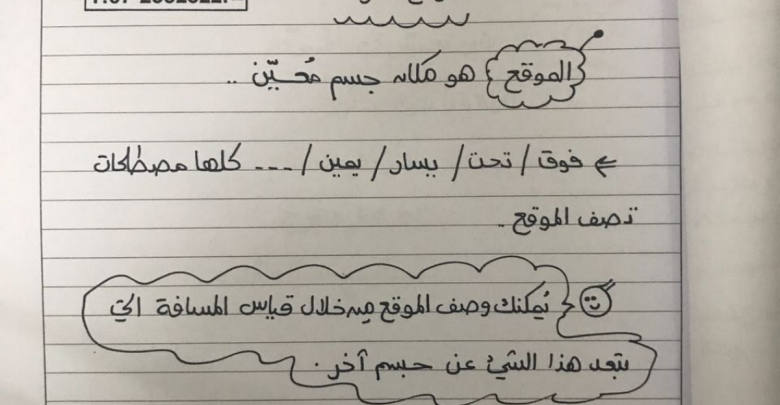 الموقع هو مكان جسم مُعيّن ..
← فوق / تحت / يسار / يمين / --- كلها مصطلحات
تصف الموقع ..
يُمكنك وصف الموقع من خلال قياس المسافة التي
يبعد هذا الشيء عن جسم آخر .